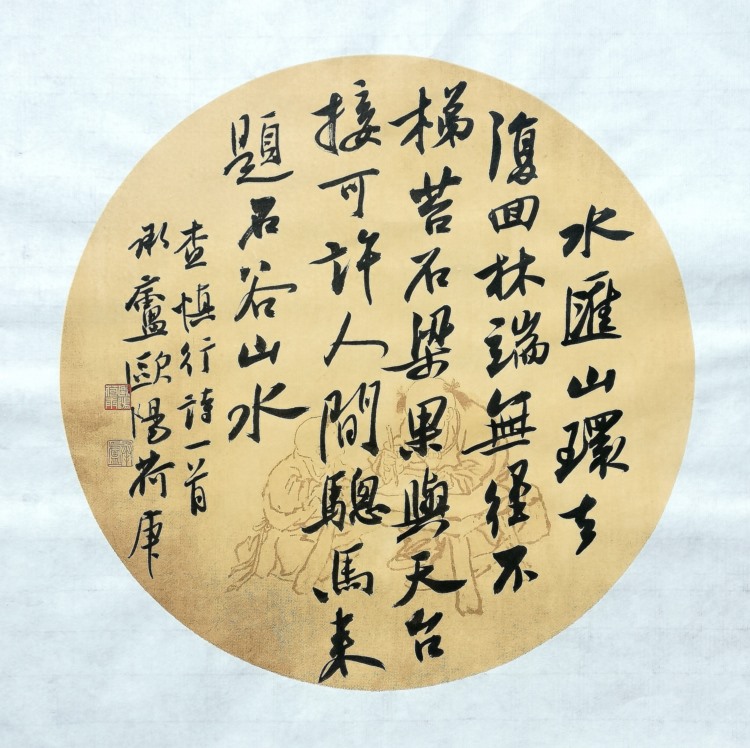 水匯山環去
復回林端無徑不
梯苔石梁果與天台
接可許人間驄馬来
題石谷山水
查慎行詩一首
承廬歐陽荷庚